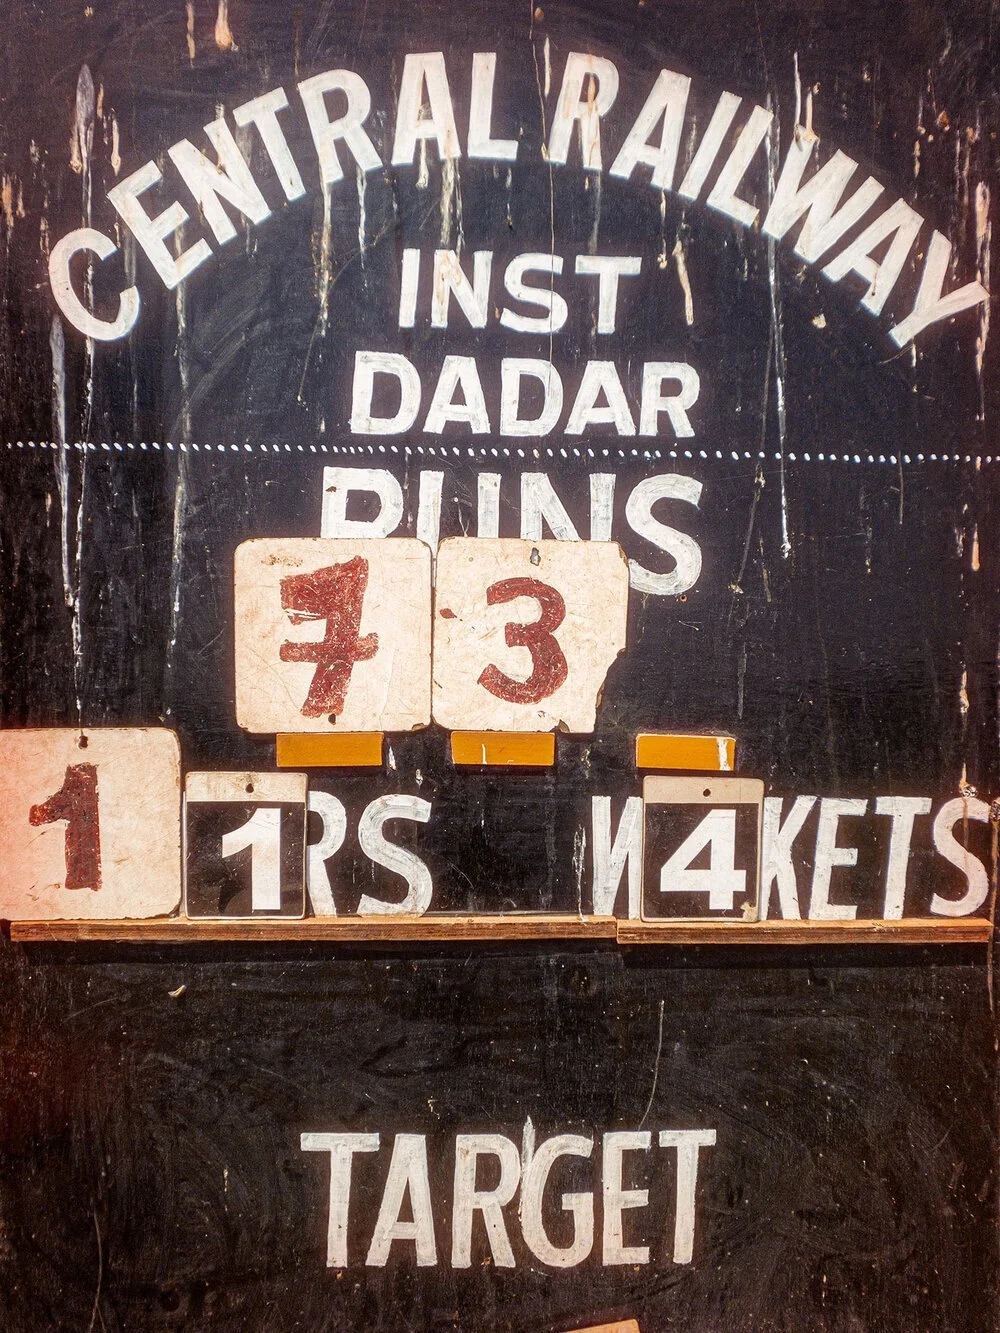 CENTRAL RAILWAY
INST
DADAR
RUNS
73
11 RS W4KETS
TARGET